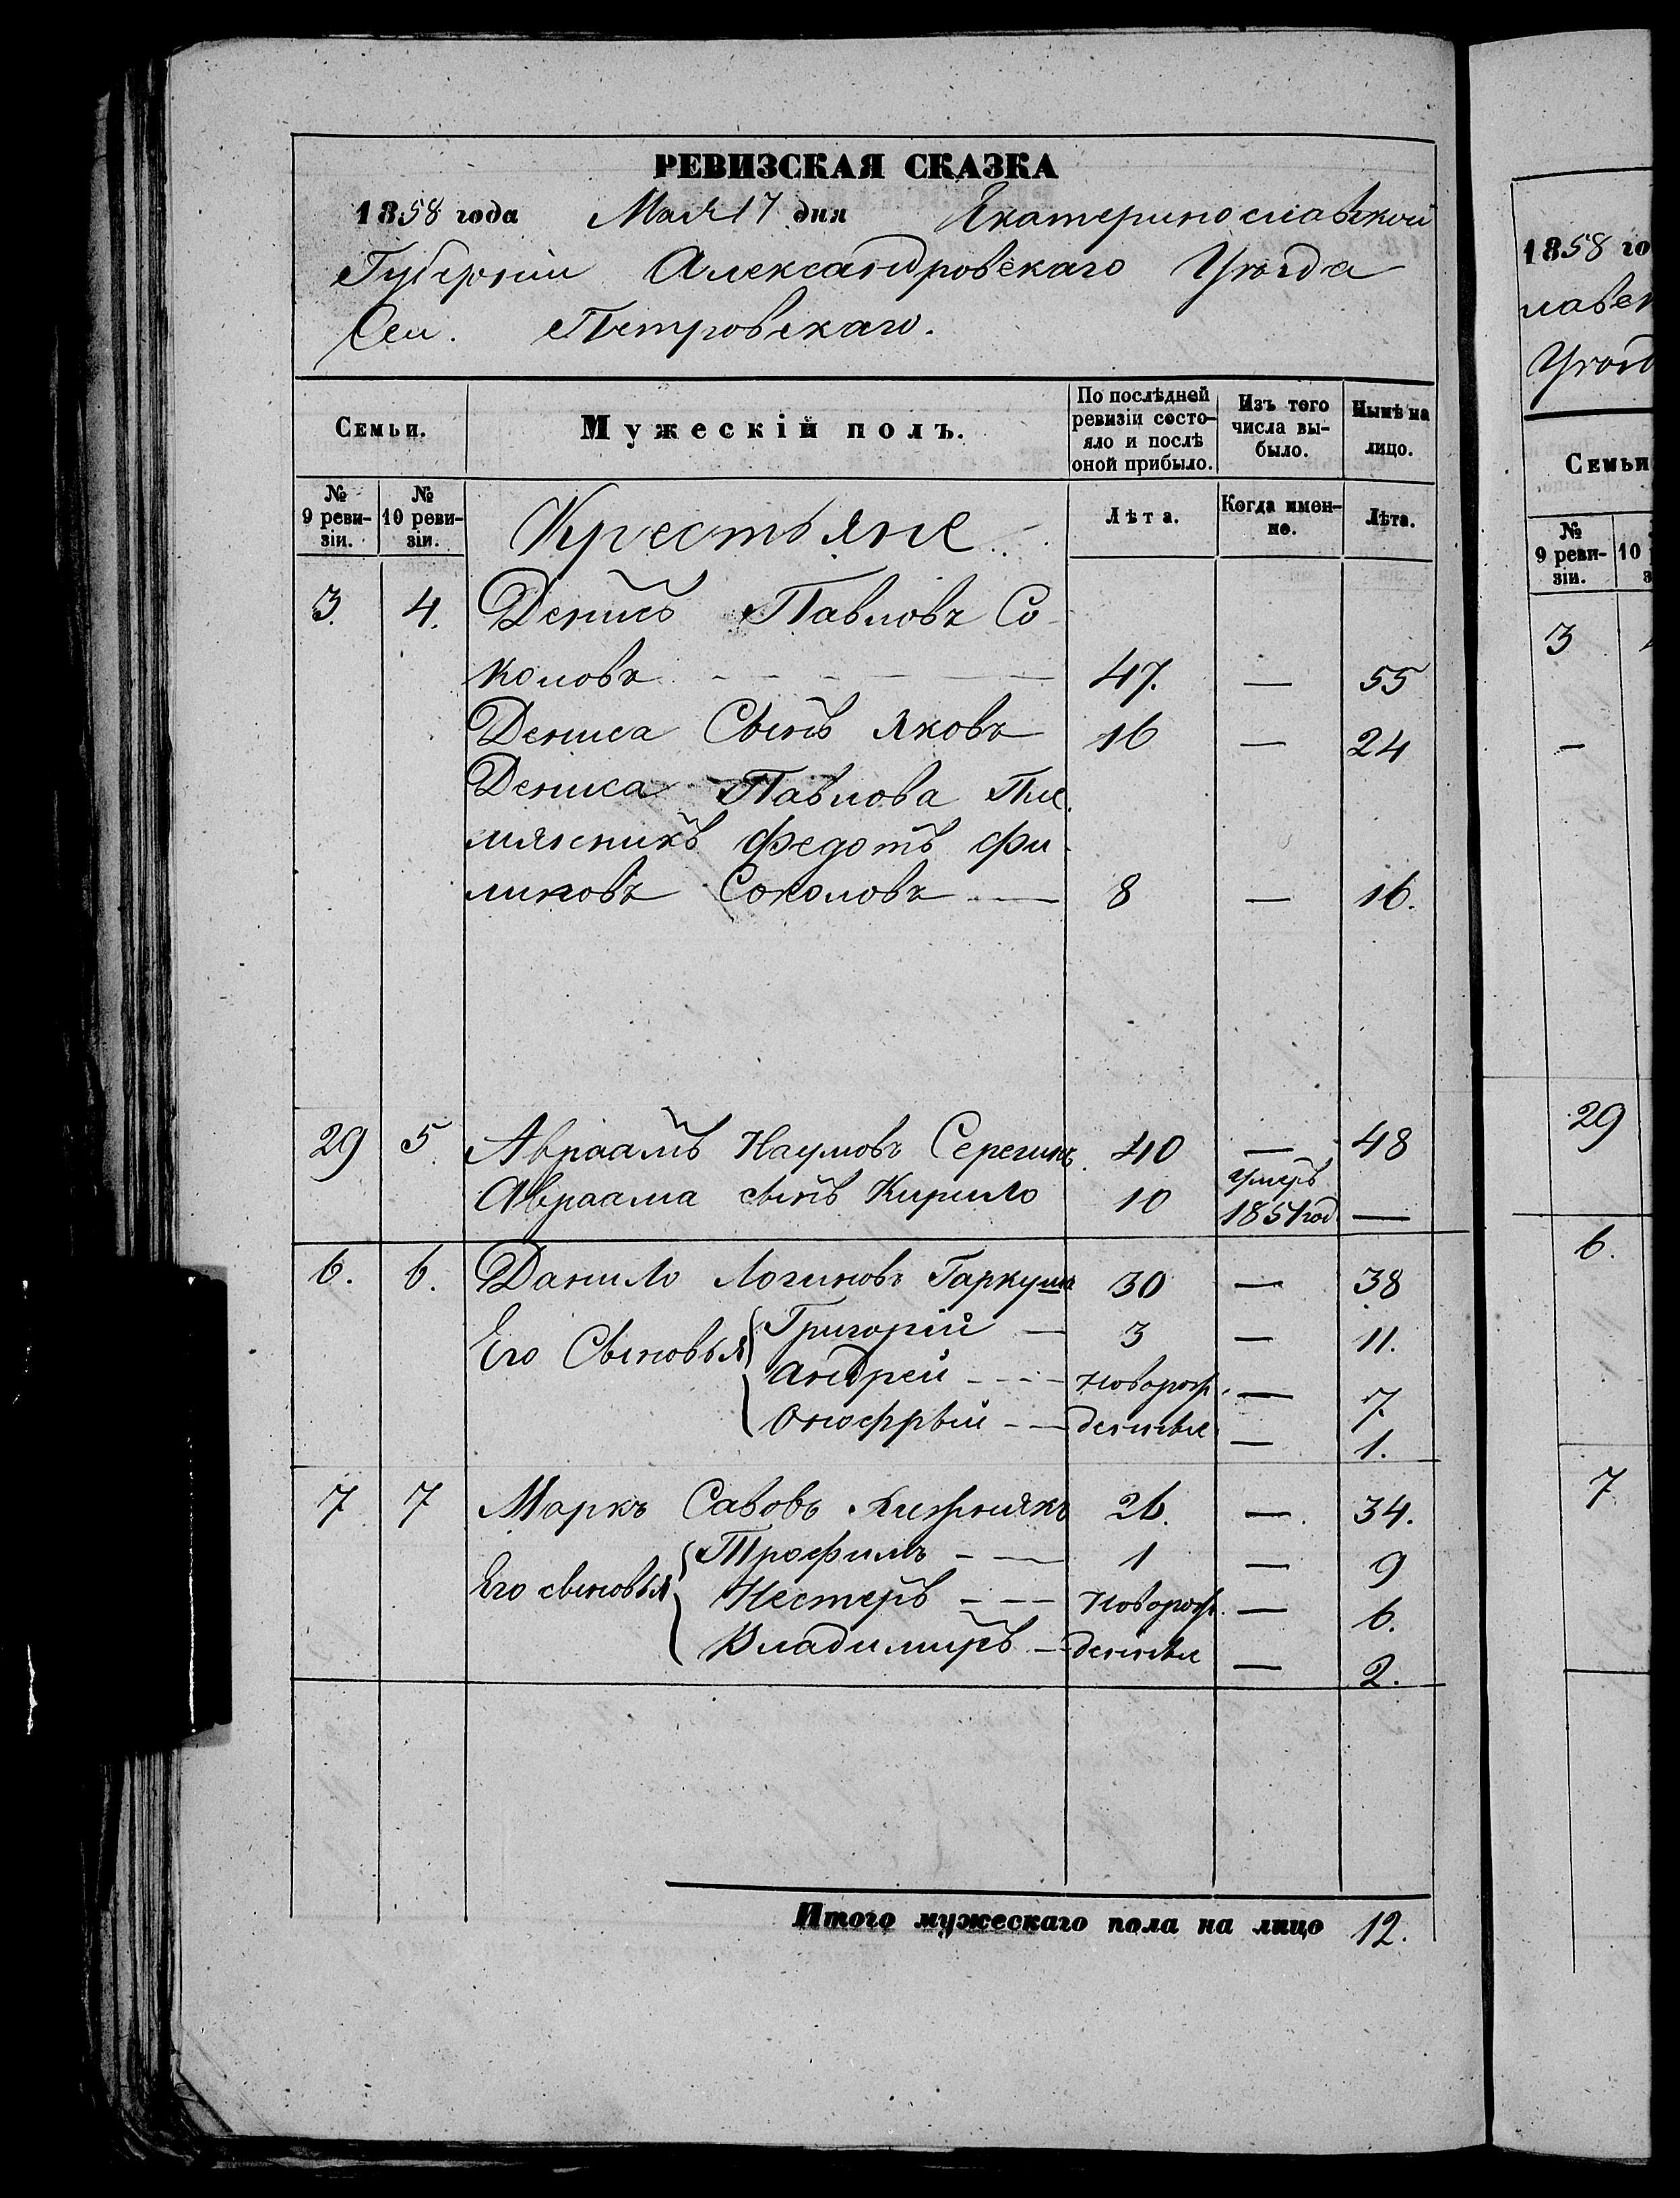 РЕВИЗСКАЯ СКАЗКА
1858 года Мая 17 дня Екатеринославской
Губерніи Александровскаго Уѣзда
Сел. Петровскаго.
Семьи.
Мужескій полъ.
По послѣдней ревизіи состо-
яло и послѣ
оной прибыло.
Изъ того
числа вы-
было.
Нынѣ на
лицо.
№
9 реви-
зіи.
№
10 реви-
зіи.
Крестьяне
Лѣта.
Когда имен-
но.
Лѣта.
3. 4. Денисъ Павловъ Со-
коловъ 47. — 55
Дениса Сынъ Яковъ 16 — 24
Дениса Павлова Пле-
мянникъ Федотъ Фи-
липовъ Соколовъ — 8 — 16.
29 5. Авраамъ Наумовъ Серегинъ. 40 — 48
Авраама сынъ Кирило 10 Умеръ 1851 год —
6. 6. Данило Логиновъ Гаркуша 30 — 38
Его Сыновья Григорій — 3 — 11.
Андрей — новорож- — 7.
Онофрѣй — денные — 1.
7 7 Маркъ Савовъ 26. — 34.
Его сыновья Трофимъ — 1 — 9
Нестеръ — новорож- — 6.
Владимиръ — денные — 2.
Итого мужескаго пола на лицо 12.
1858 го
лавск
Уѣзд
Семьи
№
9 реви-
зіи.
10
3
—
29
6.
7